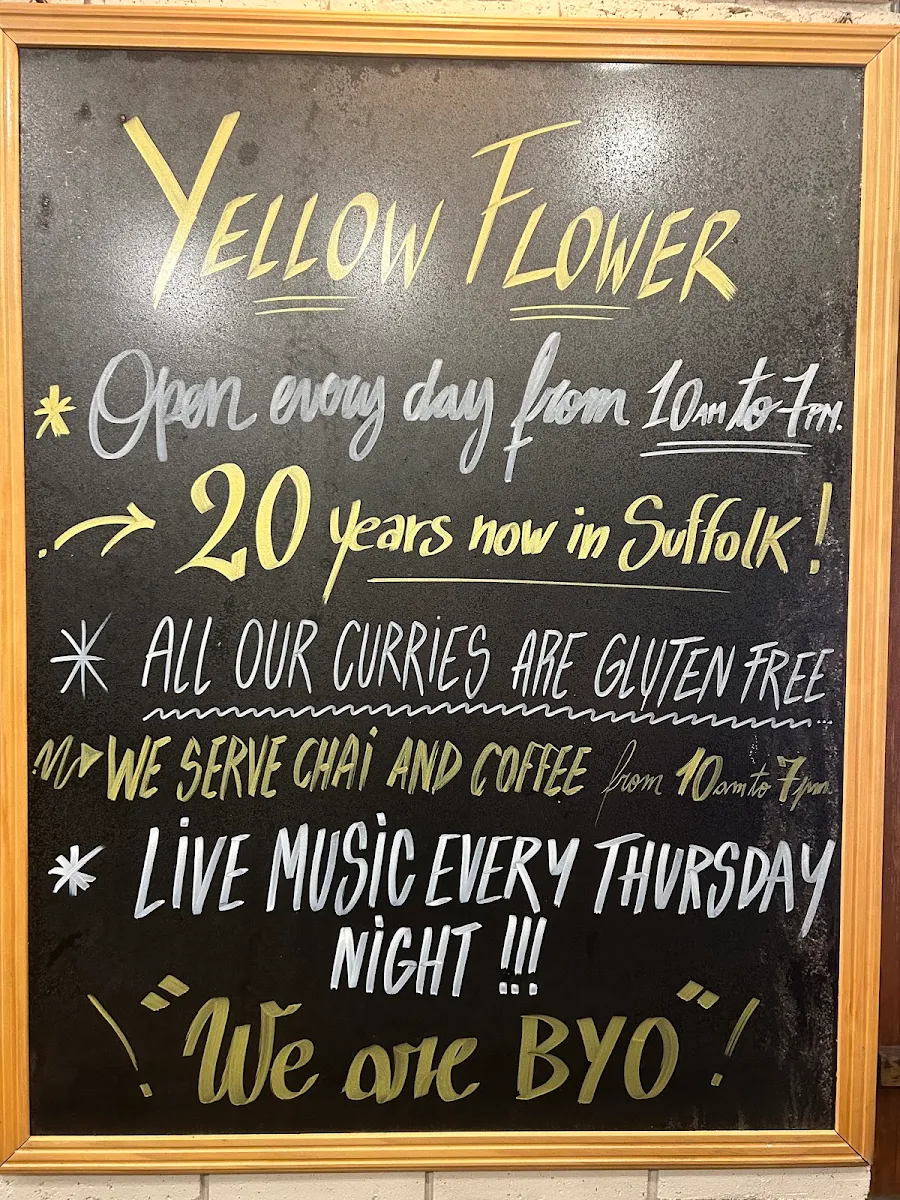 YELLOW FLOWER
Open every day from 10AM to 7PM.
20 years now in Suffolk!
ALL OUR CURRIES ARE GLUTEN FREE...
WE SERVE CHAi AND COFFEE from 10am to 7pm.
LiVE MUSiC EVERY THURSDAY
NiGHT !!!
"We are BYO"!